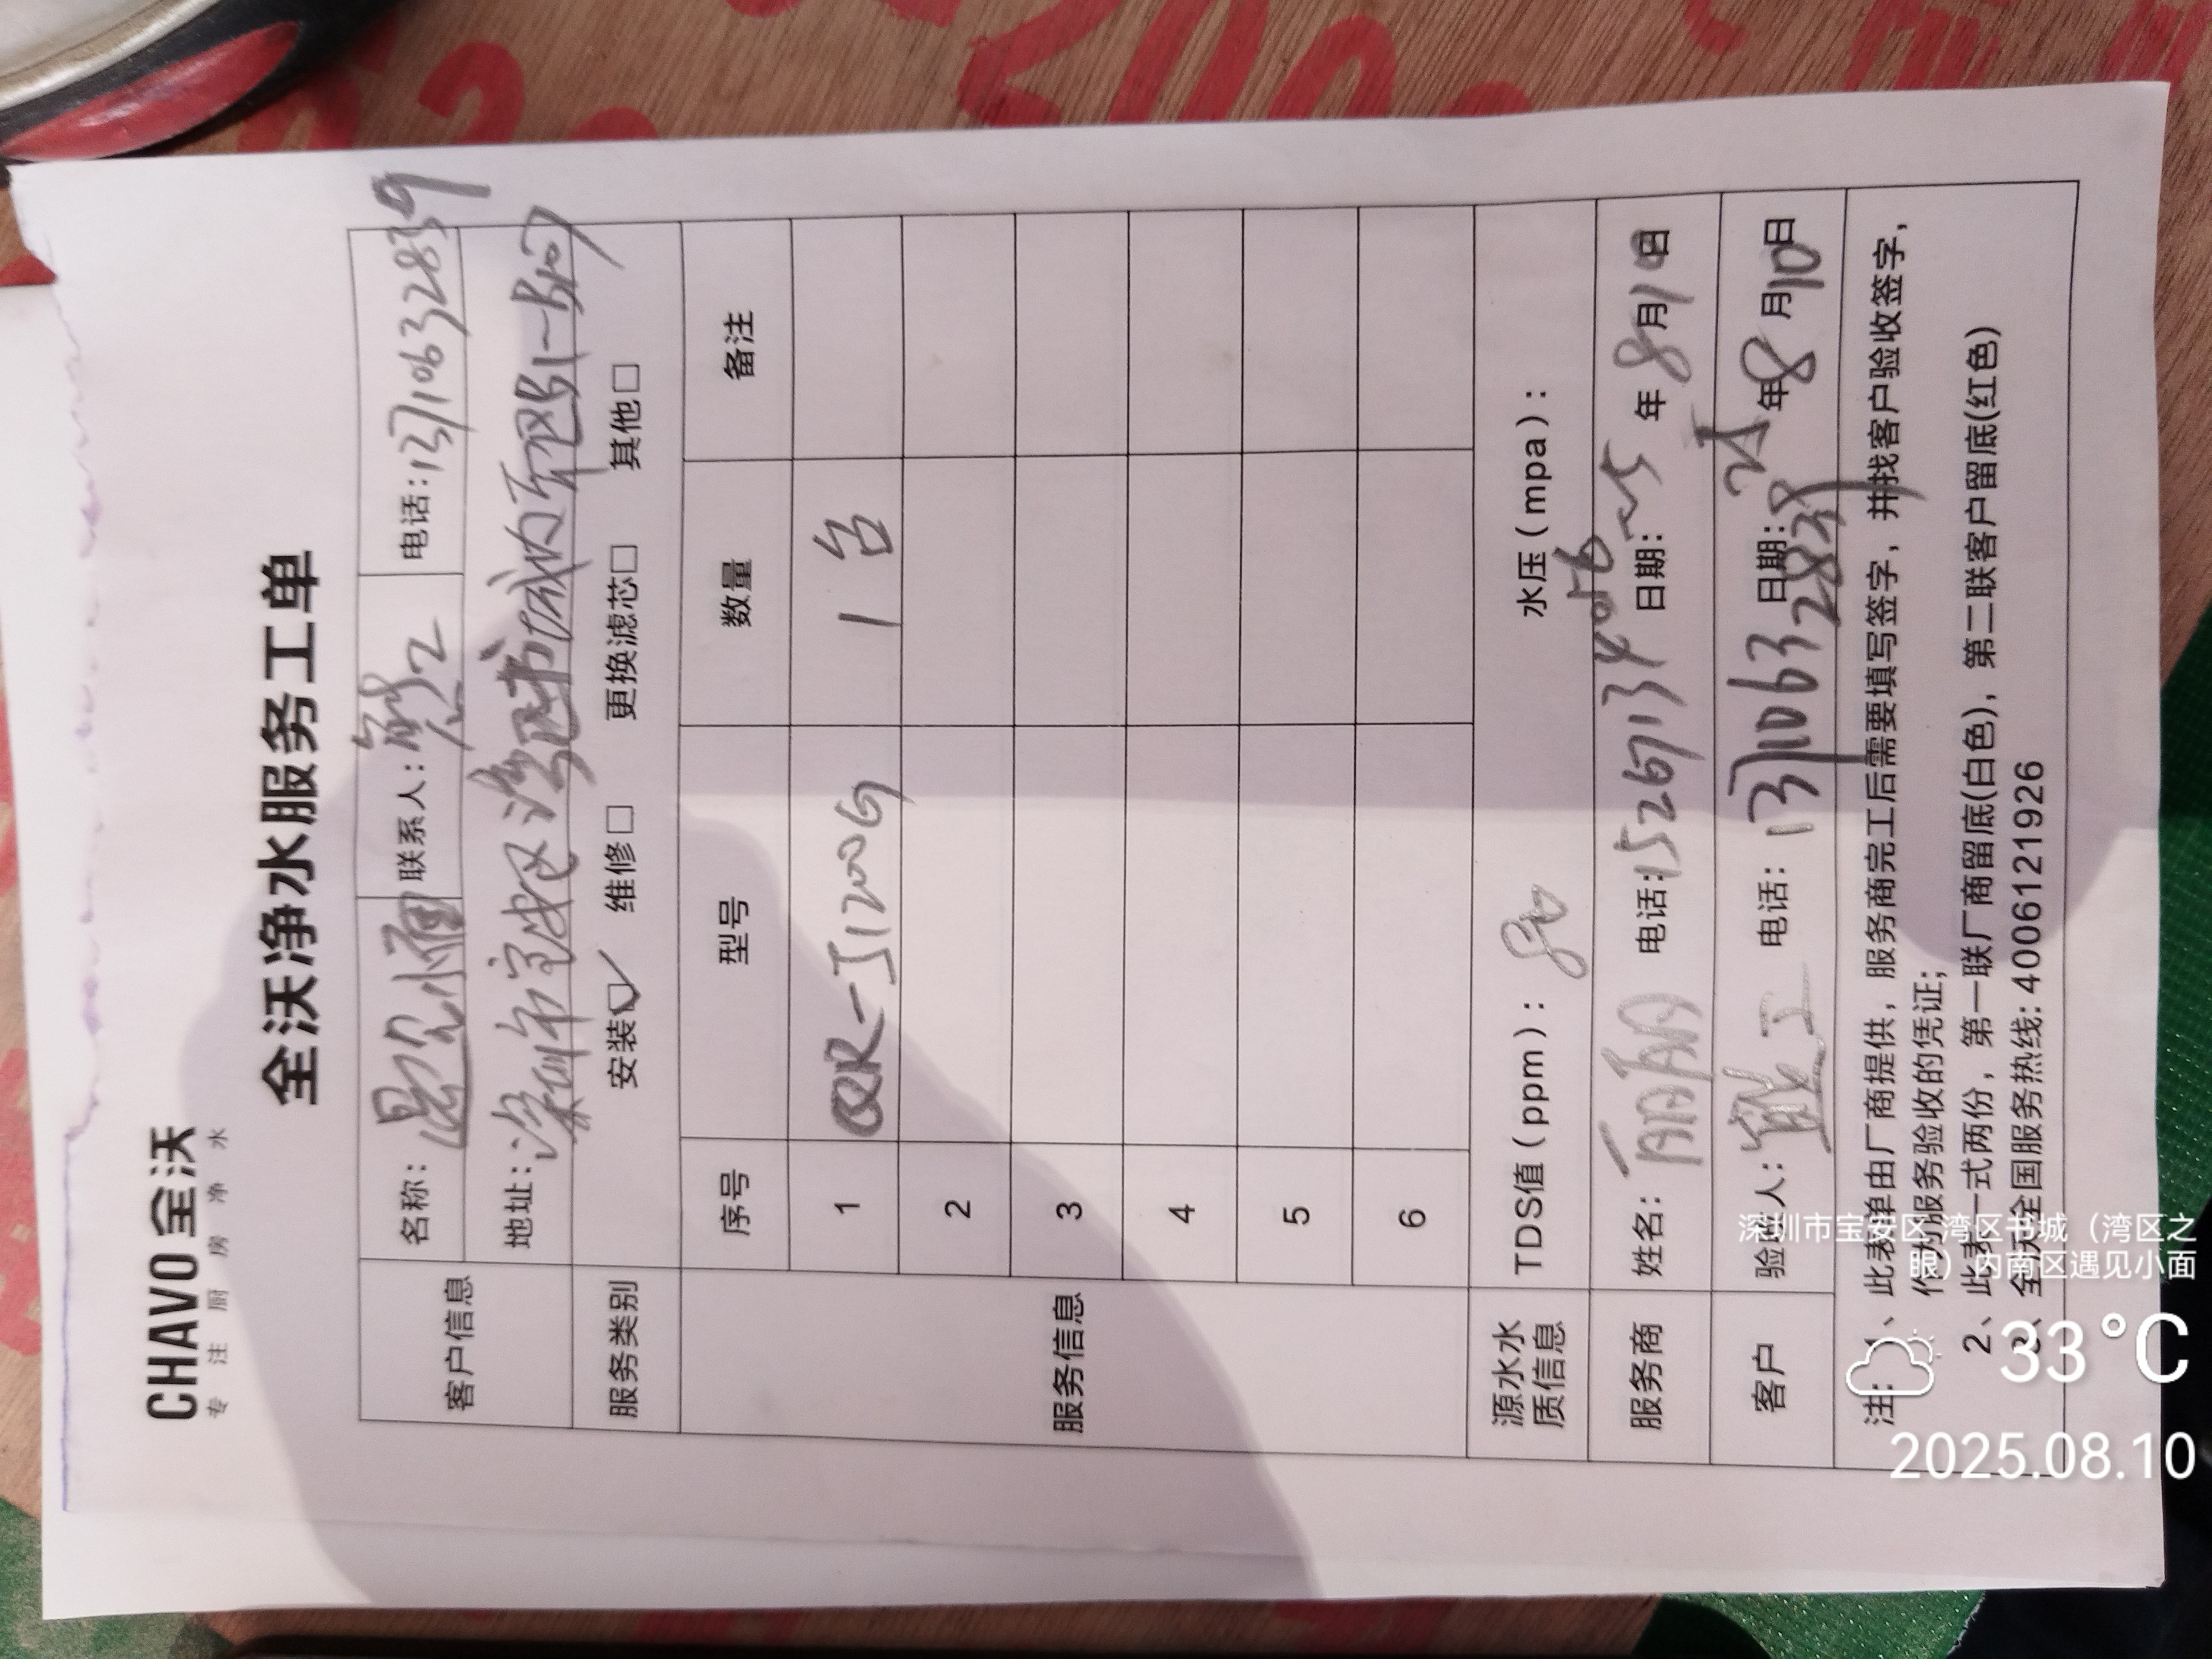 CHAVO 全沃
专注厨房净水
全沃净水服务工单
客户信息 名称: 遇见小面 联系人: 熊工 电话: 13710632839
地址: 深圳市宝安区湾区书城内南区B1-B107
服务类别 安装☑ 维修□ 更换滤芯□ 其他□
服务信息 序号 型号 数量 备注
1 QR-J1200G 1台
2
3
4
5
6
源水水质信息 TDS值(ppm): 80 水压(mpa):
服务商 姓名: 电话: 15267134056 日期: 25年8月10日
客户 验收人: 熊工 电话: 13710632839 日期: 25年8月10日
注: 1、此表单由厂商提供, 服务商完工后需要填写签字, 并找客户验收签字,
作为服务验收的凭证;
2、此表一式两份, 第一联厂商留底(白色), 第二联客户留底(红色)
3、全沃全国服务热线: 4006121926
深圳市宝安区·湾区书城(湾区之
眼)内南区遇见小面
33°C
2025.08.10